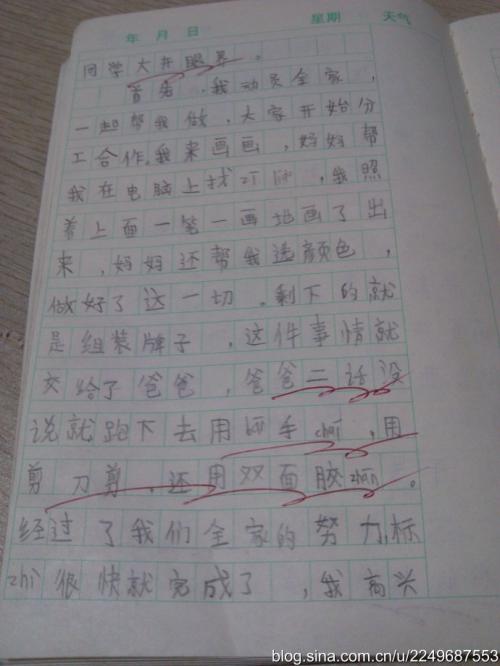 年 月 日 星期 天气
同学大开眼界。
首先,我动员全家,
一起帮我做,大家开始分
工合作,我来画画,妈妈帮
我在电脑上找zī liào,我照
着上面一笔一画地画了出
来,妈妈还帮我选颜色,
做好了这一切,剩下的就
是组装牌子,这件事情就
交给了爸爸,爸爸二话没
说就跑下去用 手 ,用
剪刀剪,还用双面胶zhān。
经过了我们全家的努力,标
zhì很快就完成了,我高兴
blog.sina.com.cn/u/2249687553